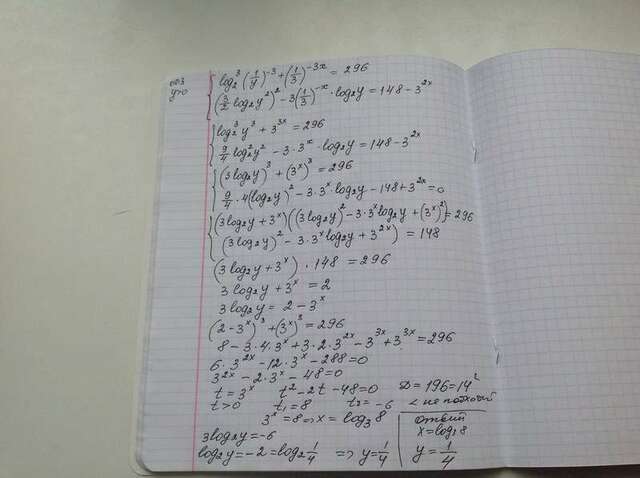 ОДЗ
y>0
{ log₂³(1/y)⁻³ + (1/3)⁻³ˣ = 296
(3/2 log₂y²)² - 3(1/3)⁻ˣ · log₂y = 148 - 3²ˣ
{ log₂³y³ + 3³ˣ = 296
9/4 log₂²y² - 3·3ˣ · log₂y = 148 - 3²ˣ
{ (3log₂y)³ + (3ˣ)³ = 296
9/4 · 4(log₂y)² - 3·3ˣ log₂y - 148 + 3²ˣ = 0
{ (3log₂y + 3ˣ)((3log₂y)² - 3·3ˣ log₂y + (3ˣ)²) = 296
(3log₂y)² - 3·3ˣ log₂y + 3²ˣ) = 148
(3log₂y + 3ˣ) · 148 = 296
3log₂y + 3ˣ = 2
3log₂y = 2 - 3ˣ
(2 - 3ˣ)³ + (3ˣ)³ = 296
8 - 3·4·3ˣ + 3·2·3²ˣ - 3³ˣ + 3³ˣ = 296
6·3²ˣ - 12·3ˣ - 288 = 0
3²ˣ - 2·3ˣ - 48 = 0
t = 3ˣ t² - 2t - 48 = 0 D = 196 = 14²
t>0 t₁ = 8 t₂ = -6 < не подход
3ˣ = 8 => x = log₃8
3log₂y = -6
log₂y = -2 = log₂ 1/4 => y = 1/4
ответ
x = log₃8
y = 1/4